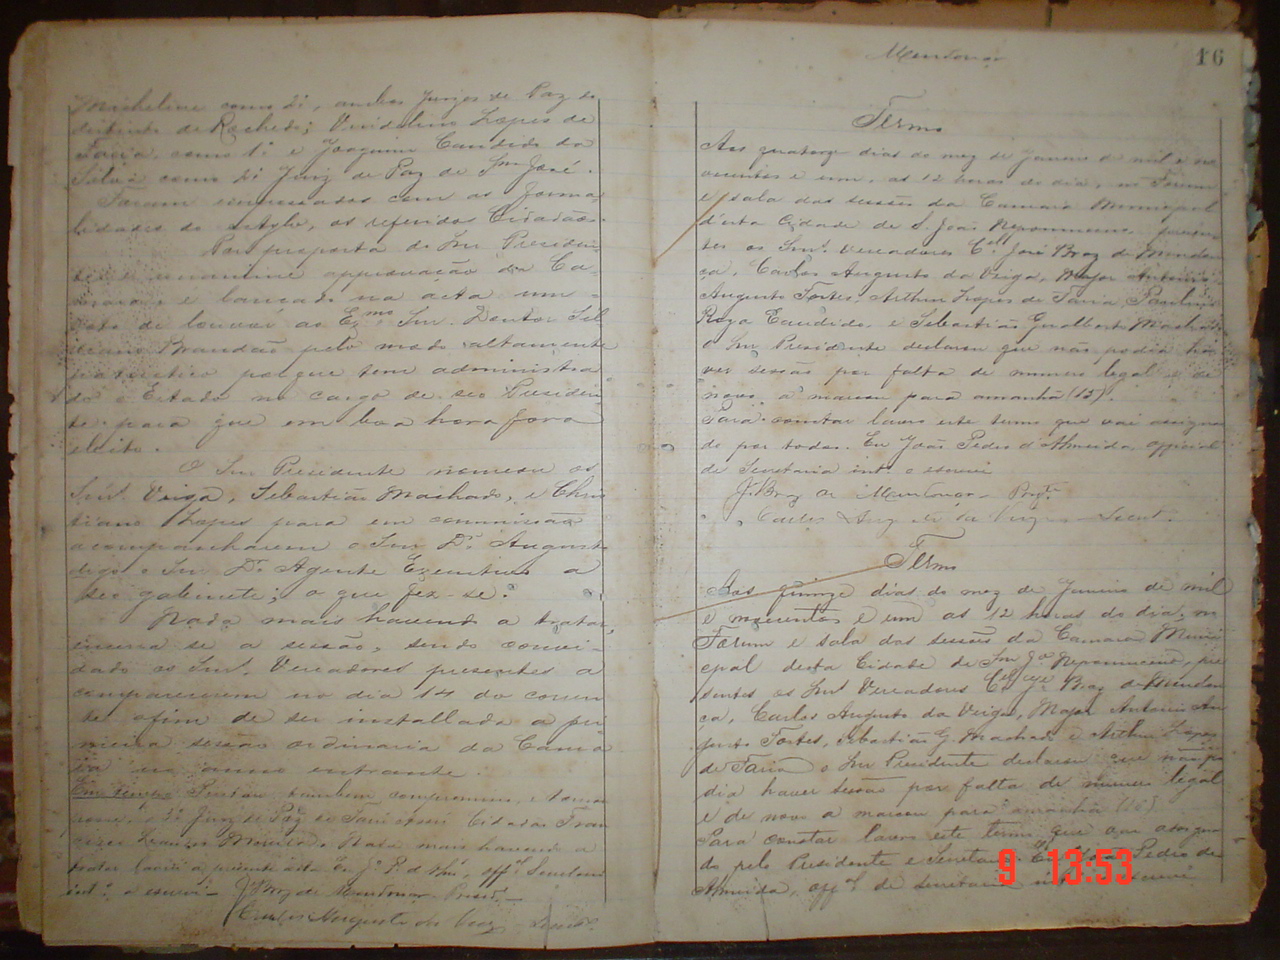 como 1º, ambos Juizes de Paz do
districto de Rochedo; Viridelino Lopes de
Faria, como 1º e Joaquim Candido da
Silva como 2º Juiz de Paz de Sm José.
Foram empossados com as forma-
lidades do estylo, os referidos Cidadãos.
Por proposta do Snr Presiden-
te e unanime approvação da Ca-
mara é lançado na acta um
voto de louvor ao Exmo Snr. Doutor Sil
viano Brandão pelo modo altamente
patriotico porque tem administra
do o Estado no cargo de seo Presiden
te para que em boa hora fora
eleito.
O Snr Presidente nomeou os
Snrs Veiga, Sebastião Machado, e Chris
tiano Lopes para em commissão
acompanharem o Snr Dr. Augusto
digo o Snr Dr. Agente Executivo a
seo gabinete; o que fez-se.
Nada mais havendo a tratar,
encerra-se a sessão, sendo convi-
dado os Snrs. Vereadores presentes a
comparecerem no dia 14 do corren
te afim de ser installada a pri
meira sessão ordinaria da Cama
ra no anno entrante.
Em tempo tambem compromisso, e tomou
posse, o 2º Juiz de Paz de Cidadão Fran
cisco Nada mais havendo a
tratar lavrei a presente acta Eu Jº P. d'Almª, offal Secretaria
intº o escrevi.
J. Braz de Mendonça. Presid.
Carlos Augusto da Veiga - Secretº.
Mendonça
16
Termo
Aos quatorze dias do mez de Janeiro de mil e no
vecentos e um, as 12 horas do dia, no Forum
e sala das sessões da Camara Municipal
d'esta Cidade de S. João Nepomuceno, presen-
tes os Snrs. Vereadores Cel José Braz de Mendon
ça, Carlos Augusto da Veiga, Major Antonio
Augusto Fortes, Arthur Lopes de Faria Paulino
Roza Candido, e Sebastião Gualberto Machado
o Snr Presidente declarou que não podia ha
ver sessão por falta de numero legal e de
novo a marcou para amanhã (15).
Para constar lavro este termo que vai assigna
do por todos. Eu João Pedro d'Almeida, official
de Secretaria intº o escrevi
J. Braz de Mendonça - Prste
Carlos Augusto da Veiga - Secret.
Termo
Aos quinze dias do mez de Janeiro de mil
e novecentos e um as 12 horas do dia, no
Forum e sala das sessões da Camara Muni
cipal desta Cidade de Sm Jº Nepomuceno, pre
sentes os Snrs Vereadores Cel Jº Braz de Mendon
ça, Carlos Augusto da Veiga, Major Antonio Au
gusto Fortes, Sebastião G. Machado e Arthur Lopes
de Faria o Snr Presidente declarou que não po
dia haver sessão por falta de numero legal
e de novo a marcou para amanhã (16)
Para constar lavro este termo que vai assigna
do pelo Presidente e Secretario Eu João Pedro de
Almeida, offal de secretaria intº o escrevi
9 13:53